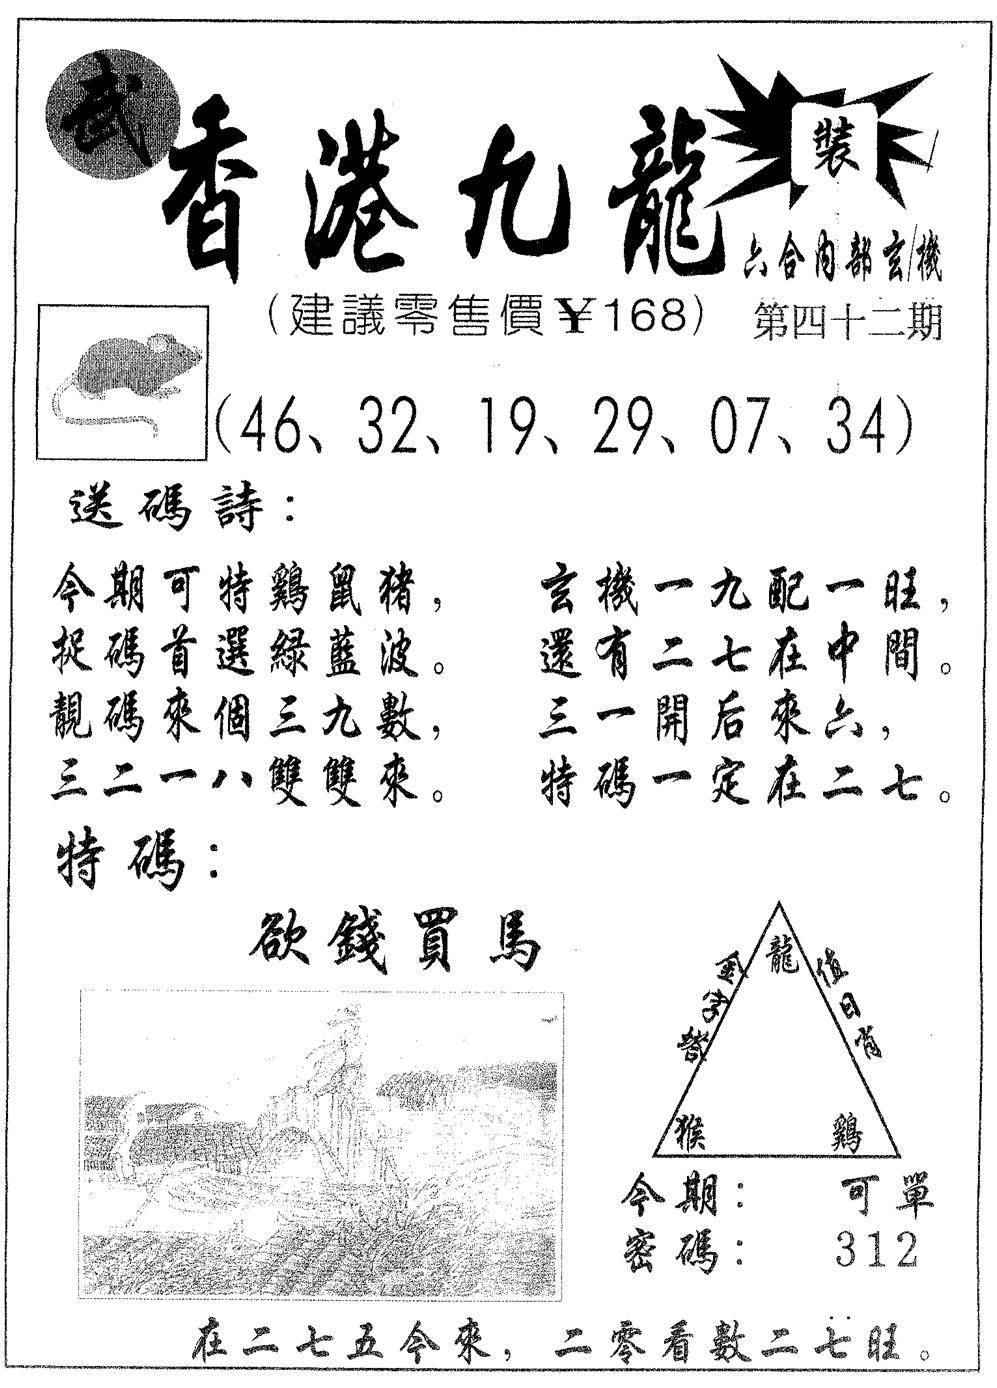 武
香港九龍
裝
六合内部玄機
(建議零售價¥168)
第四十二期
(46、32、19、29、07、34)
送碼詩：
今期可特鷄鼠猪，
捉碼首選緑藍波。
靚碼來個三九數，
三二一八雙雙來。
玄機一九配一旺，
還有二七在中間。
三一開后來六，
特碼一定在二七。
特碼：
欲錢買馬
龍
金字塔
值日肖
猴
鷄
今期： 可單
密碼： 312
在二七五今來，二零看數二七旺。